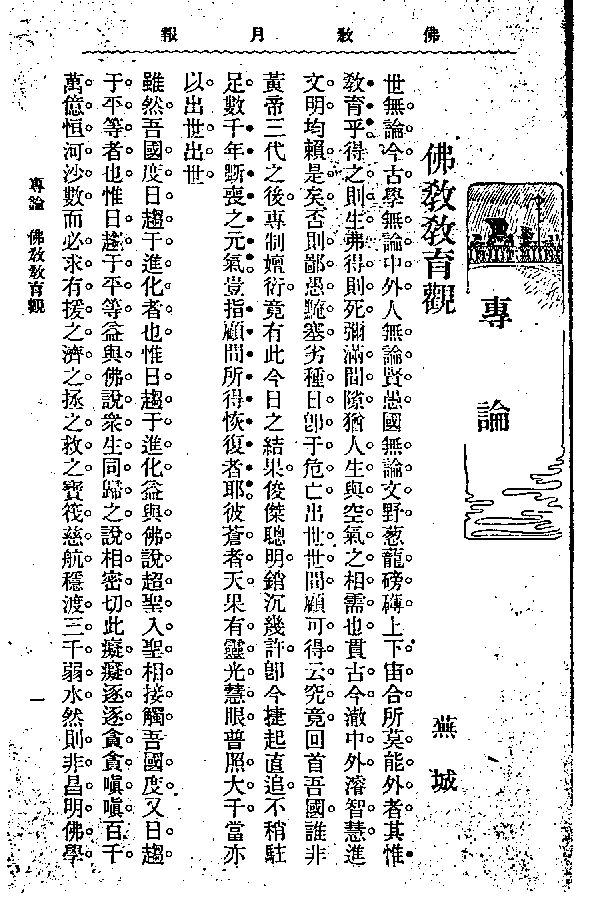 佛教月報
專論
佛教教育觀
蕪城
世無論今古學無論中外人無論賢愚國無論文野葱蘢磅礴上下宙合所莫能外者其惟
教育乎得之則生弗得則死彌滿間隙猶人生與空氣之相需也貫古今澈中外濬智慧進
文明均賴是矣否則鄙愚甝塞劣種日卽于危亡出世世間顧可得云究竟回首吾國誰非
黃帝三代之後專制嬗衍竟有此今日之結果俊傑聰明銷沉幾許卽今捷起直追不稍駐
足數千年斵喪之元氣豈指顧間所得恢復者耶彼蒼者天果有靈光慧眼普照大千當亦
以出世出世
雖然吾國度日趨于進化者也惟日趨于進化益與佛說超聖入聖相接觸吾國度又日趨
于平等者也惟日趨于平等益與佛說衆生同歸之說相密切此癡癡逐逐貪貪嗔嗔百千
萬億恒河沙數而必求有援之濟之拯之救之寶筏慈航穩渡三千弱水然則非昌明佛學
專論 佛教教育觀
一